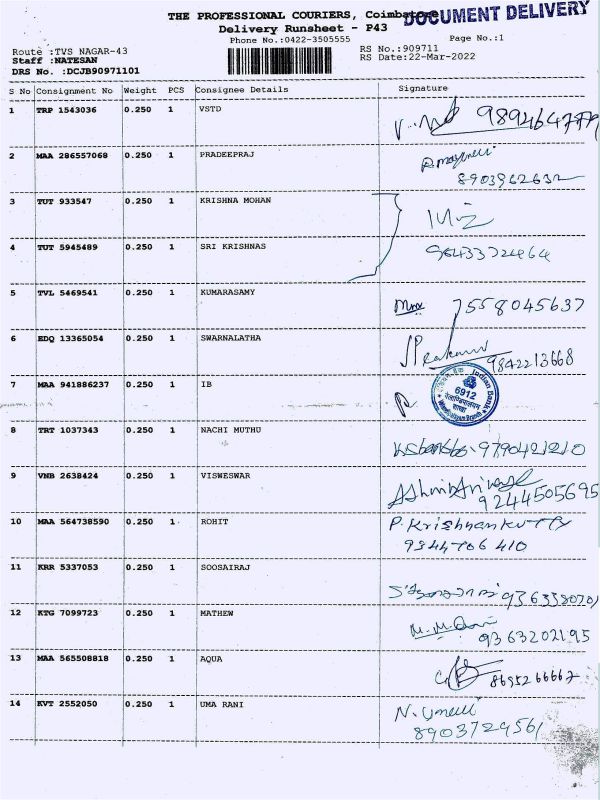 THE PROFESSIONAL COURIERS, Coimbatore
DOCUMENT DELIVERY
Delivery Runsheet - P43
Phone No.:0422-3505555
Page No.:1
Route :TVS NAGAR-43
RS No.:909711
Staff :NATESAN
RS Date:22-Mar-2022
DRS No. :DCJB90971101
S No Consignment No Weight PCS Consignee Details Signature
1 TRP 1543036 0.250 1 VSTD
9894647779
2 MAA 286557068 0.250 1 PRADEEPRAJ
8903962632
3 TUT 933547 0.250 1 KRISHNA MOHAN
4 TUT 5945489 0.250 1 SRI KRISHNAS
5 TVL 5469541 0.250 1 KUMARASAMY
7558045637
6 EDQ 13365054 0.250 1 SWARNALATHA
9842213668
7 MAA 941886237 0.250 1 IB
Indian Bank
6912
8 TRT 1037343 0.250 1 NACHI MUTHU
9790421210
9 VNB 2638424 0.250 1 VISWESWAR
9244505695
10 MAA 564738590 0.250 1 ROHIT
P. Krishnankutty
9344706 410
11 KRR 5337053 0.250 1 SOOSAIRAJ
12 KTG 7099723 0.250 1 MATHEW
9363202195
13 MAA 565508818 0.250 1 AQUA
8695266667
14 KVT 2552050 0.250 1 UMA RANI
8903729561